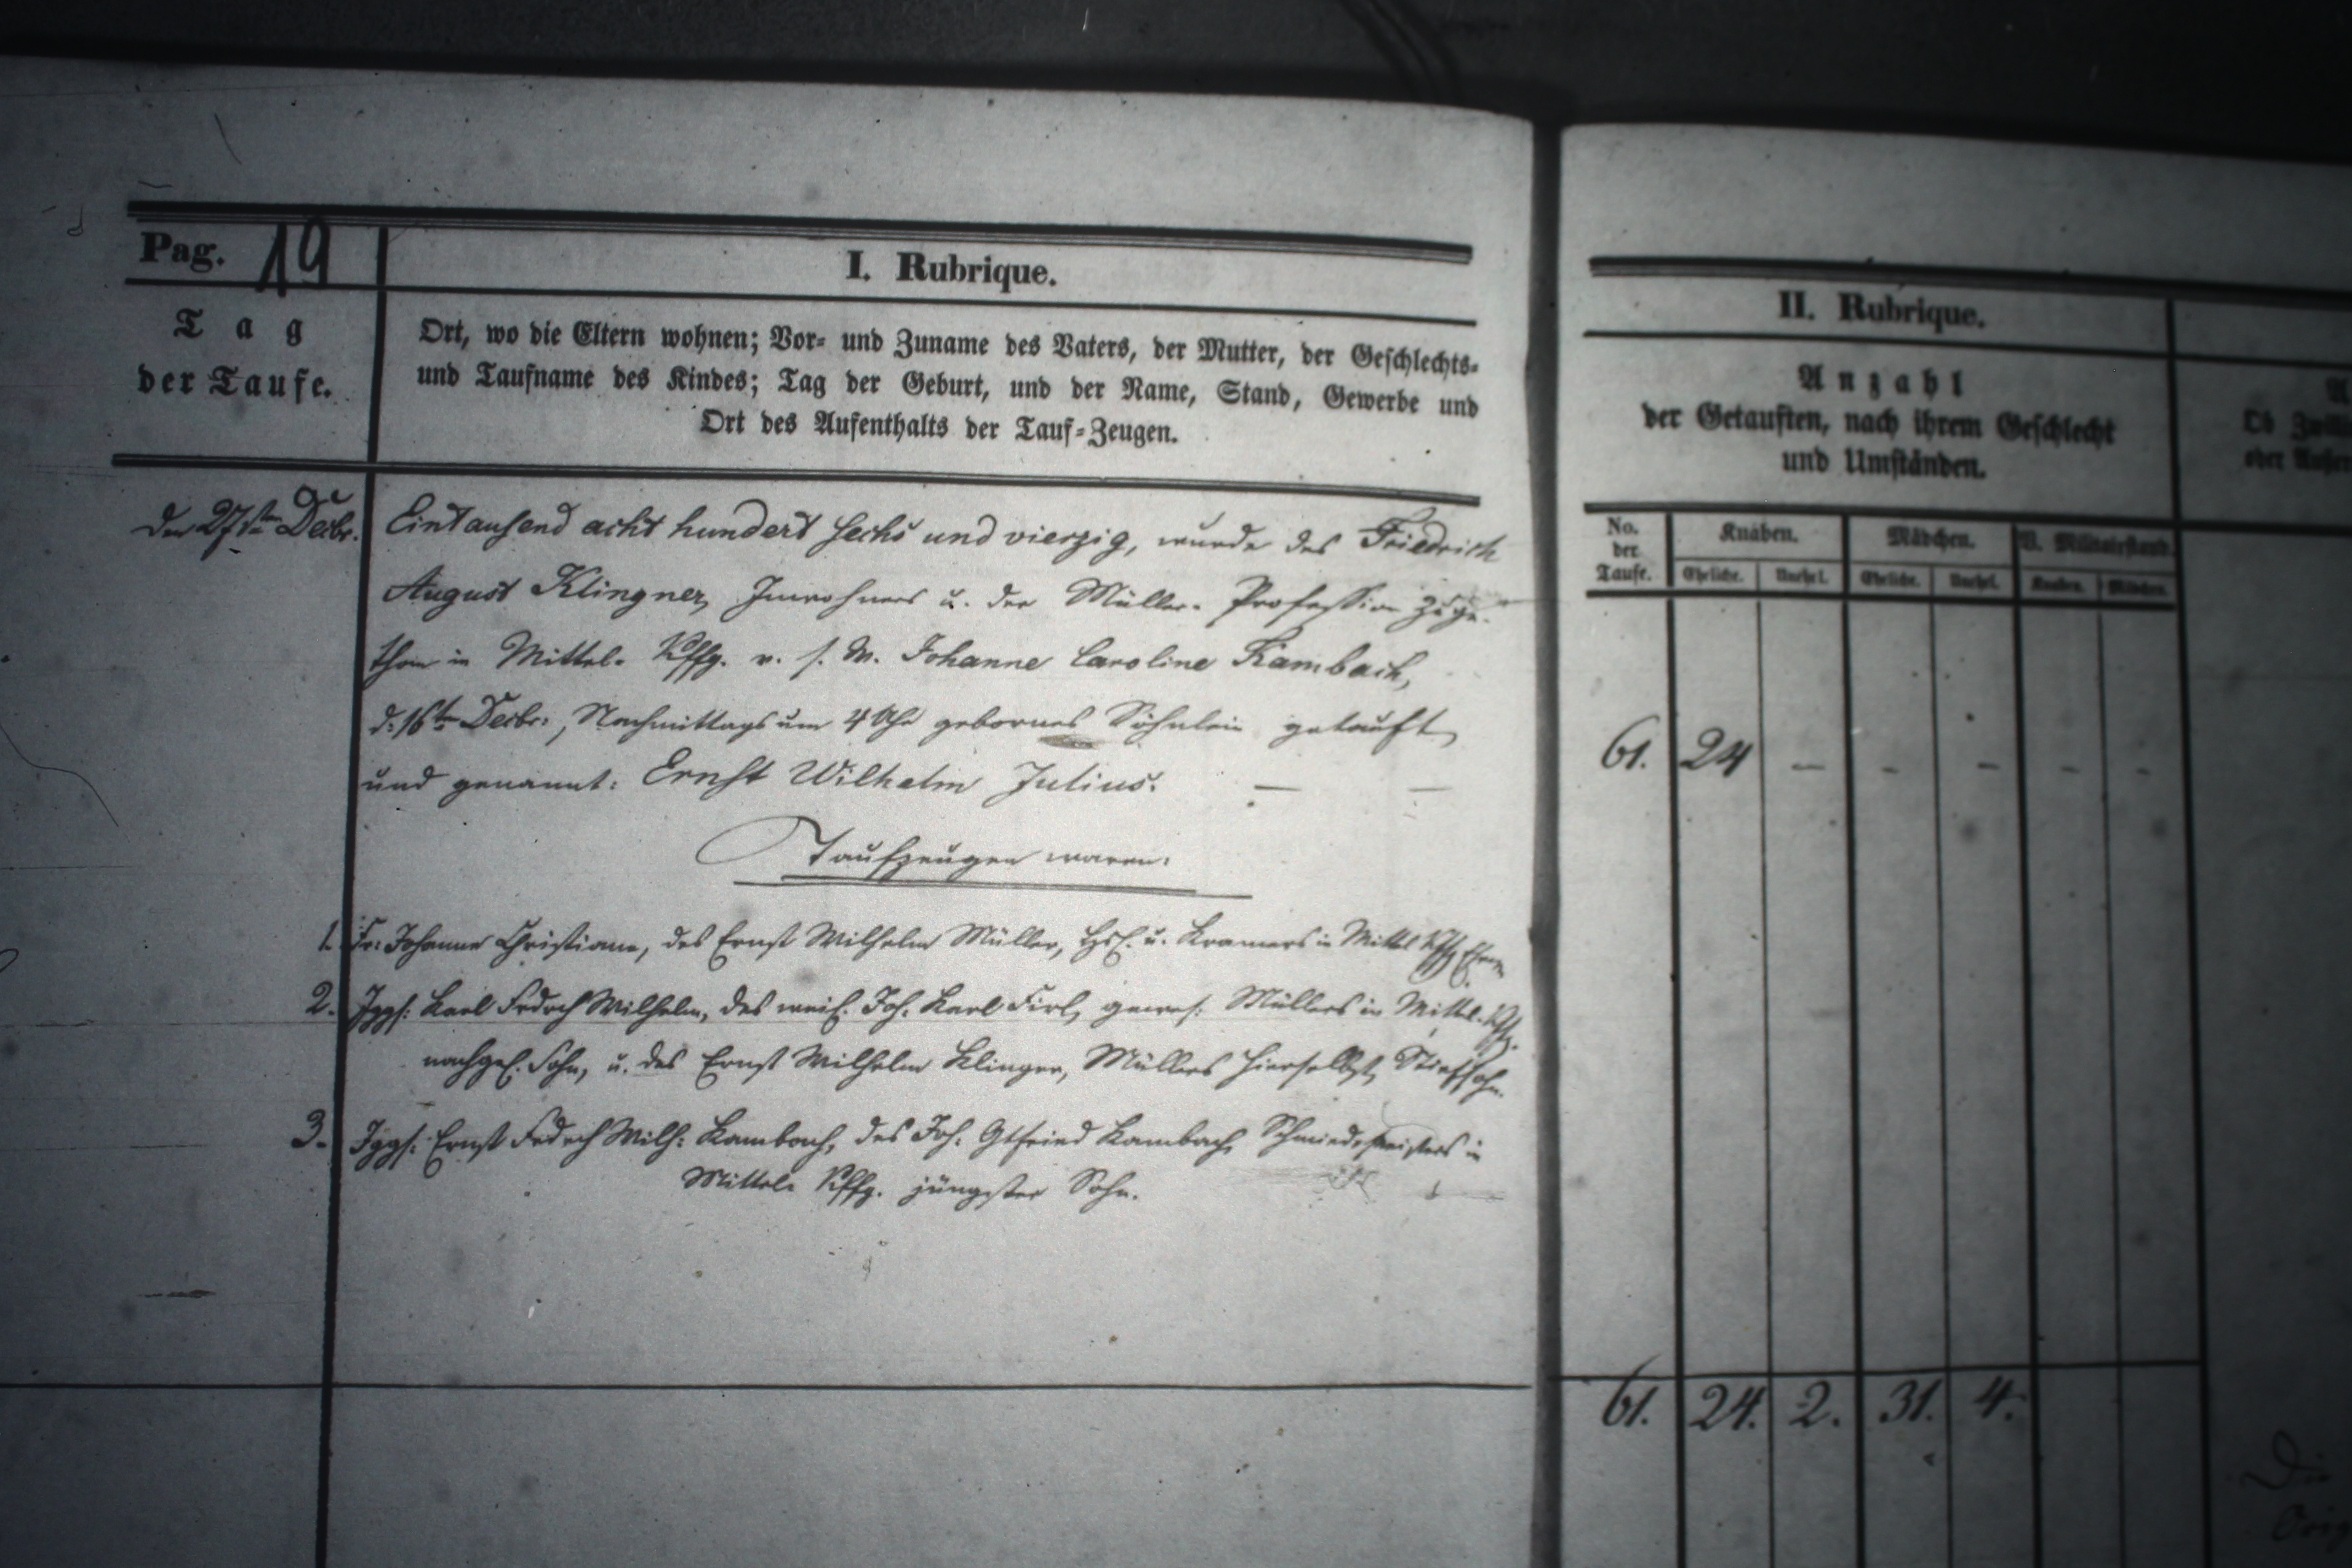 Pag. 19
I. Rubrique.
Tag
der Taufe.
Ort, wo die Eltern wohnen; Vor- und Zuname des Vaters, der Mutter, der Geschlechts-
und Taufname des Kindes; Tag der Geburt, und der Name, Stand, Gewerbe und
Ort des Aufenthalts der Tauf-Zeugen.
Den 27ste Decbr. Eintausend acht hundert sechs und vierzig, wurde des Friedrich
August Klingner, Inwohners u. der Müller-Profession zuge-
than in Mittel-Kffg. v. s. W. Johanne Caroline Kambach,
d. 16te Decbr., Nachmittags um 4 Uhr gebornes Söhnlein getauft,
und genannt: Ernst Wilhelm Julius. — —
Taufzeugen waren:
1. Fr. Johanne Christiane, des Ernst Wilhelm Müller, Hsl. u. Kramers in Mittel Kffg.
2. Iggs. Karl Frdrch Wilhelm, des weil. Joh. Karl Firl, gewes. Müllers in Mittel-Kffg.
nachgel. Sohn, u. des Ernst Wilhelm Klinger, Müllers hierselbst, Stiefsohn.
3. Iggs. Ernst Frdrch Wilh. Kambach, des Joh. Gtfried Kambach, Schmiedemeisters in
Mittel-Kffg. jüngster Sohn.
II. Rubrique.
Anzahl
der Getauften, nach ihrem Geschlecht
und Umständen.
No. der Taufe. Knaben. Mädchen. V. Militairstand.
Eheliche. Unehel. Eheliche. Unehel. Knaben. Mädchen.
61. 24 — — — — —
61. 24. 2. 31. 4.